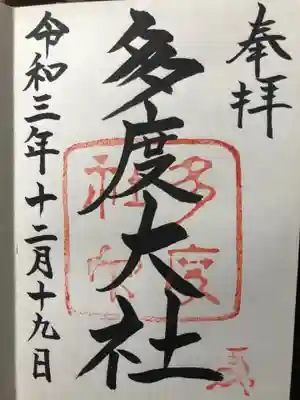 奉拝
多度大社
令和三年十二月十九日